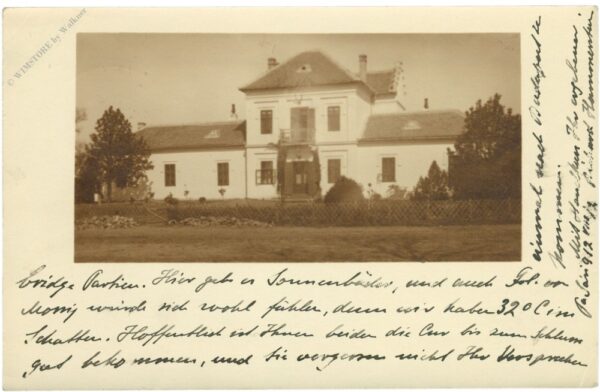 © WIMSTORE by Walkner
Bridge Partien. Hier gab es Sonnenbäder, und auch Frl. von
würde sich wohl fühlen, denn wir haben 32° C im
Schatten. Hoffentlich ist Ihnen beiden die Cur bis zum Schluss
gut bekommen, und Sie vergessen nicht Ihr Versprechen
einmal nach Budapest zu
kommen.
Ihr ergebener
1912